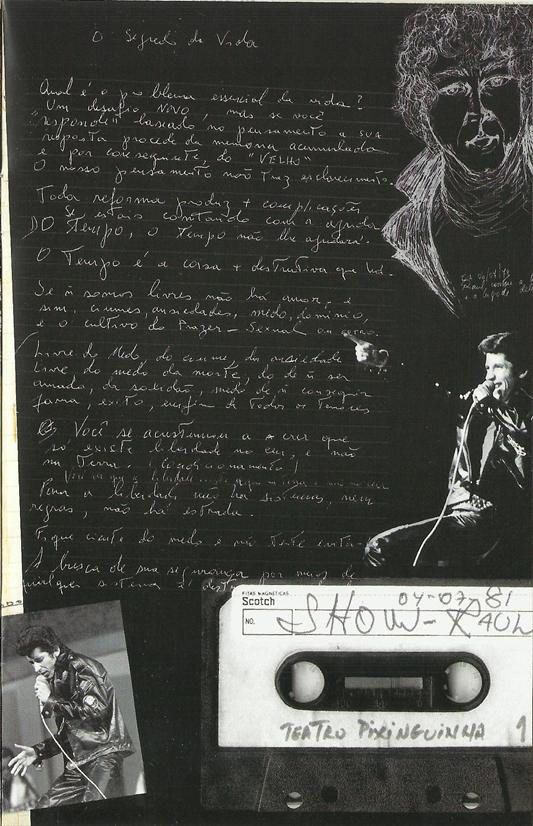 O Segredo da Vida
Qual é o problema essencial da vida?
Um desafio NOVO, mas se você
"responde" baseado no pensamento a sua
resposta procede da memoria acumulada
e por conseguinte, do "VELHO"
O nosso pensamento não traz esclarecimento.
Toda reforma produz + complicações
Se estais contando com a ajuda
DO Tempo, o Tempo não lhe ajudará.
O Tempo é a coisa + destrutiva que há.
Se ñ somos livres, não há amor, e
sim, ciumes, ansiedades, medo, dominio,
e o cultivo do Prazer - Sexual ou
Livre do Medo, do ciume, da ansiedade
Livre do medo da morte, do de ñ ser
amado, da solidão, medo de ñ conseguir
fama, exito, enfim de Todos os Temores
Você se acostumou a crer que
só existe liberdade no céu, e não
na Terra. (Condicionamento)
Para a liberdade não há sistemas, nem
regras, não há estrada.
Fique ciente do medo e não tente
A busca de sua segurança por meio de
qualquer sistema
FITAS MAGNÉTICAS
Scotch
04-07-81
NO.
SHOW-RAUL
TEATRO PIXINGUINHA 1